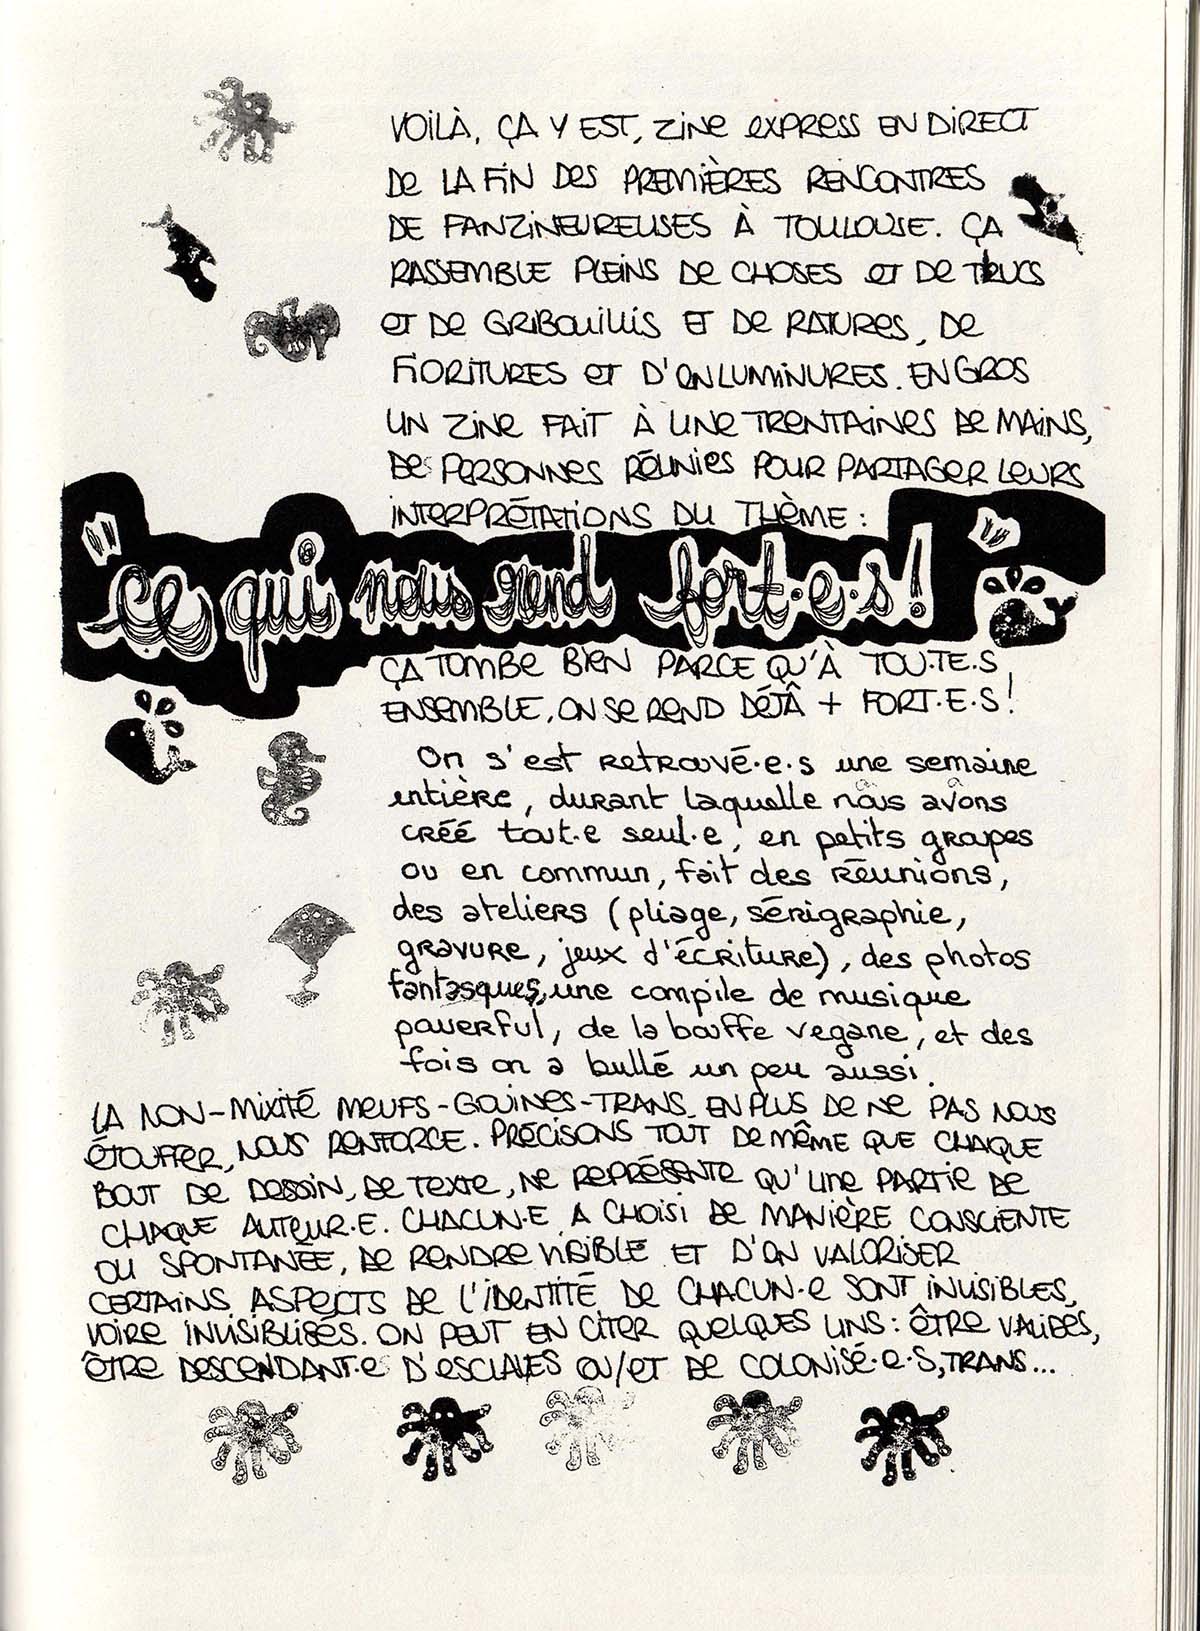 VOILÀ, ÇA Y EST, ZINE EXPRESS EN DIRECT
DE LA FIN DES PREMIÈRES RENCONTRES
DE FANZINEUREUSES À TOULOUSE. ÇA
RASSEMBLE PLEINS DE CHOSES ET DE TRUCS
ET DE GRIBOUILLIS ET DE RATURES, DE
FIORITURES ET D'ENLUMINURES. EN GROS
UN ZINE FAIT À UNE TRENTAINES DE MAINS,
DE PERSONNES RÉUNIES POUR PARTAGER LEURS
INTERPRÉTATIONS DU THÈME :
"ce qui nous rend fort·e·s!"
ÇA TOMBE BIEN PARCE QU'À TOU·TE·S
ENSEMBLE, ON SE REND DÉJÀ + FORT·E·S!
On s'est retrouvé·e·s une semaine
entière, durant laquelle nous avons
créé tout·e seul·e, en petits groupes
ou en commun, fait des réunions,
des ateliers (pliage, sérigraphie,
gravure, jeux d'écriture), des photos
fantasques, une compile de musique
pauerful, de la bouffe vegane, et des
fois on a bullé un peu aussi.
LA NON-MIXITÉ MEUFS-GOUINES-TRANS, EN PLUS DE NE PAS NOUS
ÉTOUFFER, NOUS RENFORCE. PRÉCISONS TOUT DE MÊME QUE CHAQUE
BOUT DE DESSIN, DE TEXTE, NE REPRÉSENTE QU'UNE PARTIE DE
CHAQUE AUTEUR·E. CHACUN·E A CHOISI DE MANIÈRE CONSCIENTE
OU SPONTANÉE, DE RENDRE VISIBLE ET D'EN VALORISER
CERTAINS ASPECTS DE L'IDENTITÉ DE CHACUN·E SONT INVISIBLES,
VOIRE INVISIBLISÉS. ON PEUT EN CITER QUELQUES UNS : ÊTRE VALIDES,
ÊTRE DESCENDANT·E D'ESCLAVES OU/ET DE COLONISÉ·E·S, TRANS...